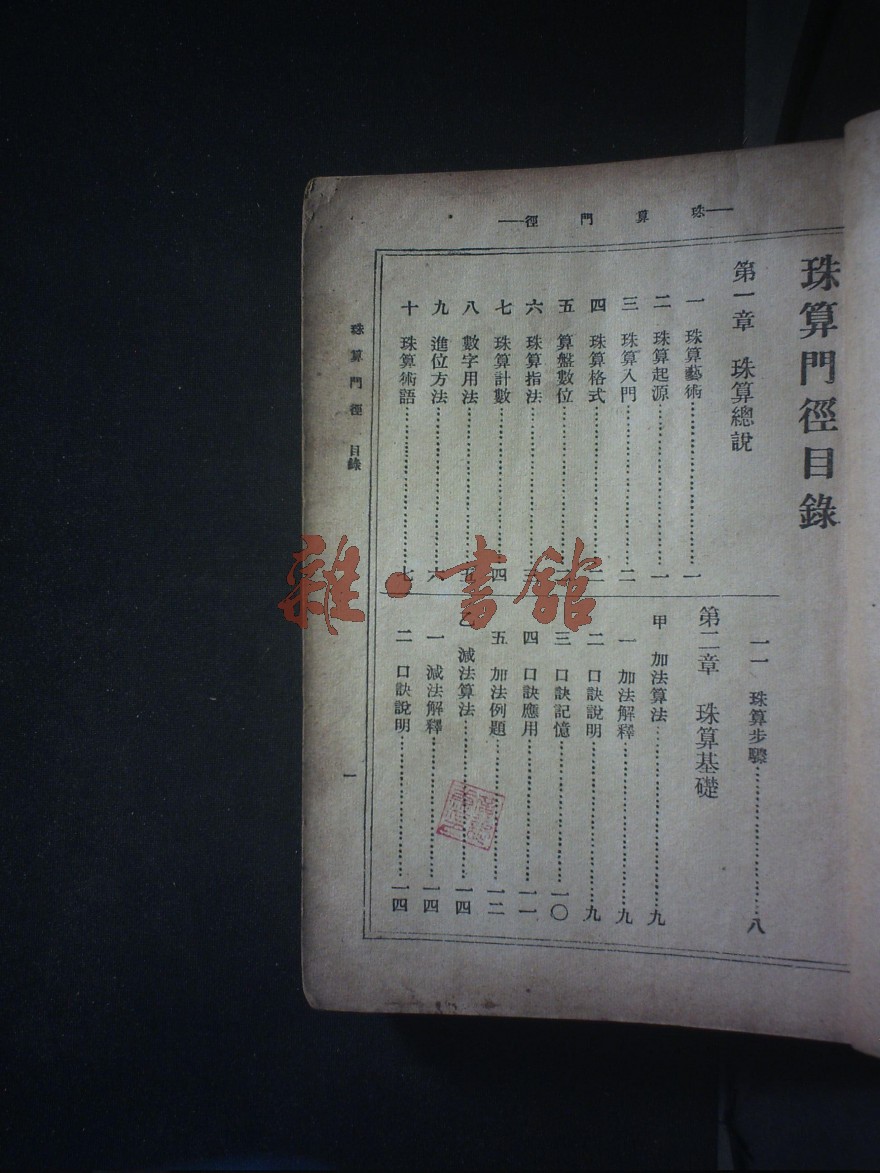 珠算門徑
珠算門徑目錄
第一章 珠算總說
一 珠算藝術……一
二 珠算起源……一
三 珠算入門……二
四 珠算格式……二
五 算盤數位……
六 珠算指法……三
七 珠算計數……四
八 數字用法……五
九 進位方法……六
十 珠算術語……七
一一 珠算步驟……八
第二章 珠算基礎
甲 加法算法……九
一 加法解釋……九
二 口訣說明……九
三 口訣記憶……一〇
四 口訣應用……一一
五 加法例題……一二
乙 減法算法……一四
一 減法解釋……一四
二 口訣說明……一四
珠算門徑 目錄
一
雜·書館